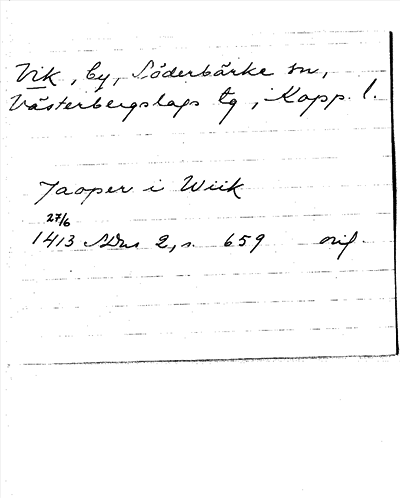 Vik, by, Söderbärke sn,
Västerbergslags tg, Kopp. l.
Jaoper i Wiik
27/6
1413 SDns 2, s. 659 orig.